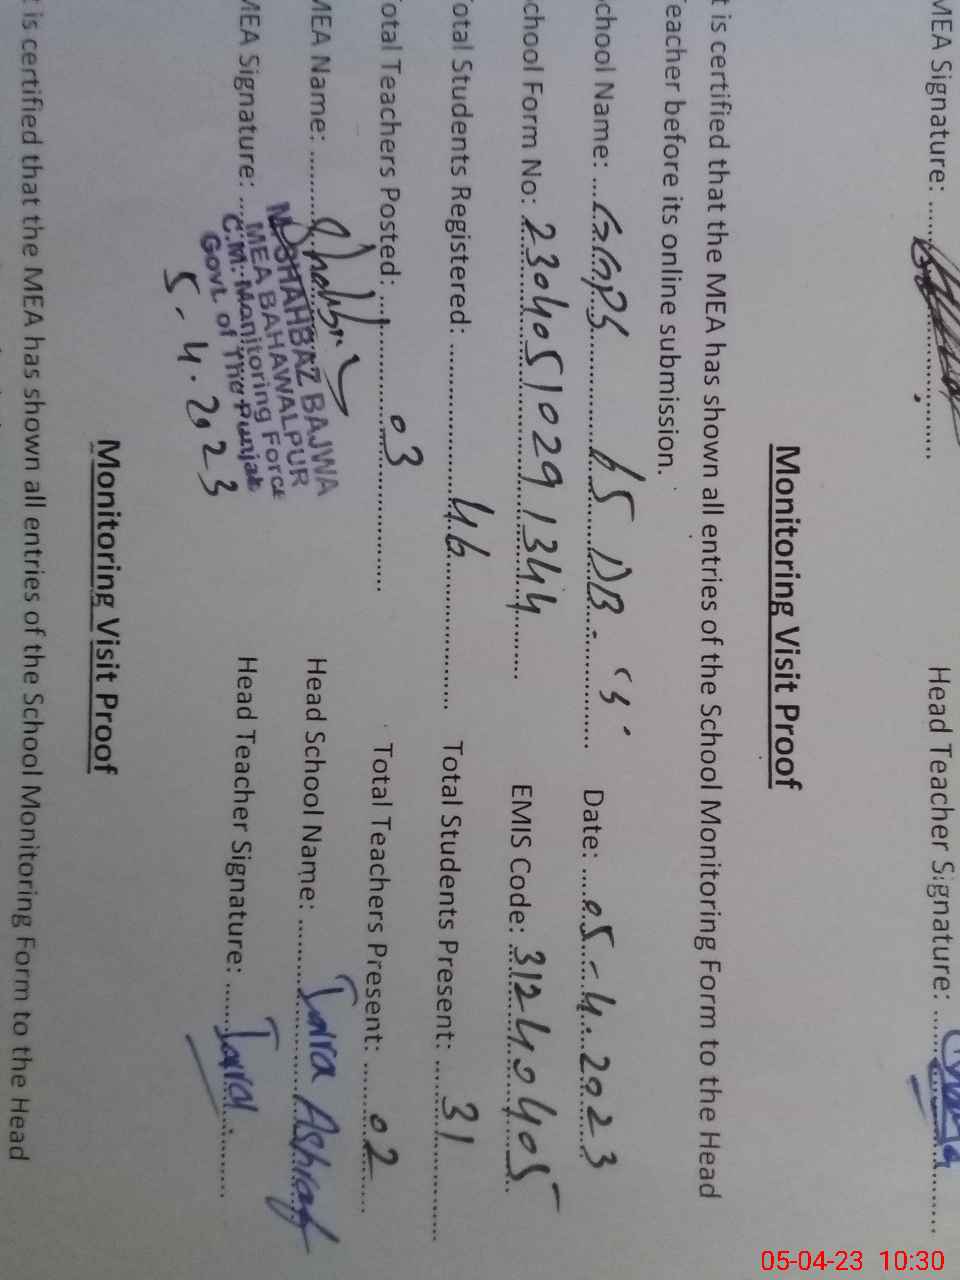 MEA Signature: .......... Head Teacher Signature: ..........
Monitoring Visit Proof
t is certified that the MEA has shown all entries of the School Monitoring Form to the Head
eacher before its online submission.
chool Name: ... GGPS 65 DB. Date: ... 05-4.2023
chool Form No: 2304051029 1344 EMIS Code: 31240405
otal Students Registered: ... 46 Total Students Present: ... 31
otal Teachers Posted: ... 03 Total Teachers Present: ... 02
MEA Name: ... Head School Name: ... Taira Ashraf
MEA Signature: ... Head Teacher Signature: ...
M SHAHBAZ BAJWA
MEA BAHAWALPUR
C.M. Monitoring Force
Govt. of The Punjab
5-4.2023
Monitoring Visit Proof
t is certified that the MEA has shown all entries of the School Monitoring Form to the Head
05-04-23 10:30